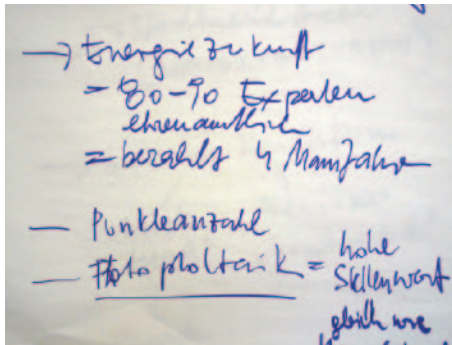 → Energiezukunft
= 80-90 Experten
ehrenamtlich
= bezahlt 4 Mannjahre
— Punkteanzahl
— Photopholtaik = hohe
Stellenwert
gleich wie